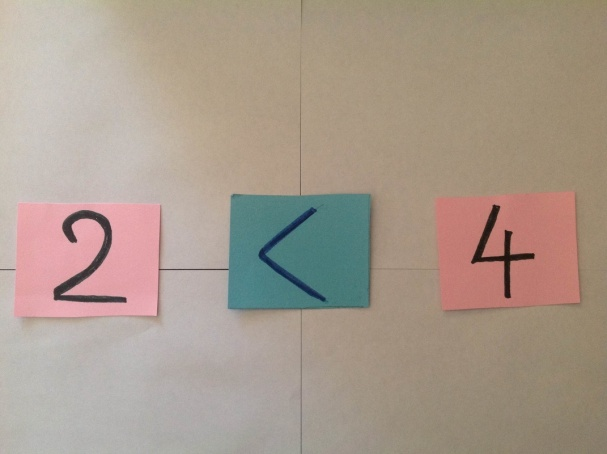 2 < 4